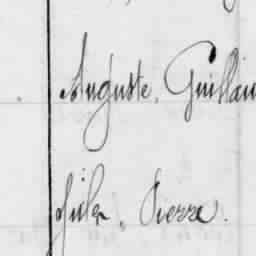 Auguste, Guillau
Jules, Pierre.